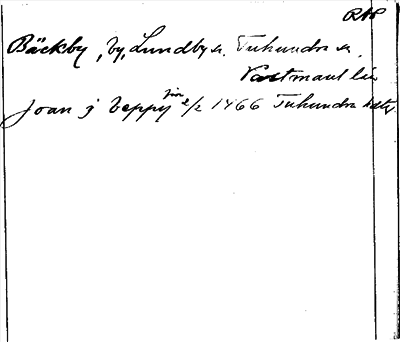 RAP
Bäckby, by, Lundby sn. Tuhundra sn.
Västmanl. län
Joan j beppy 2/2 1466 Tuhundra